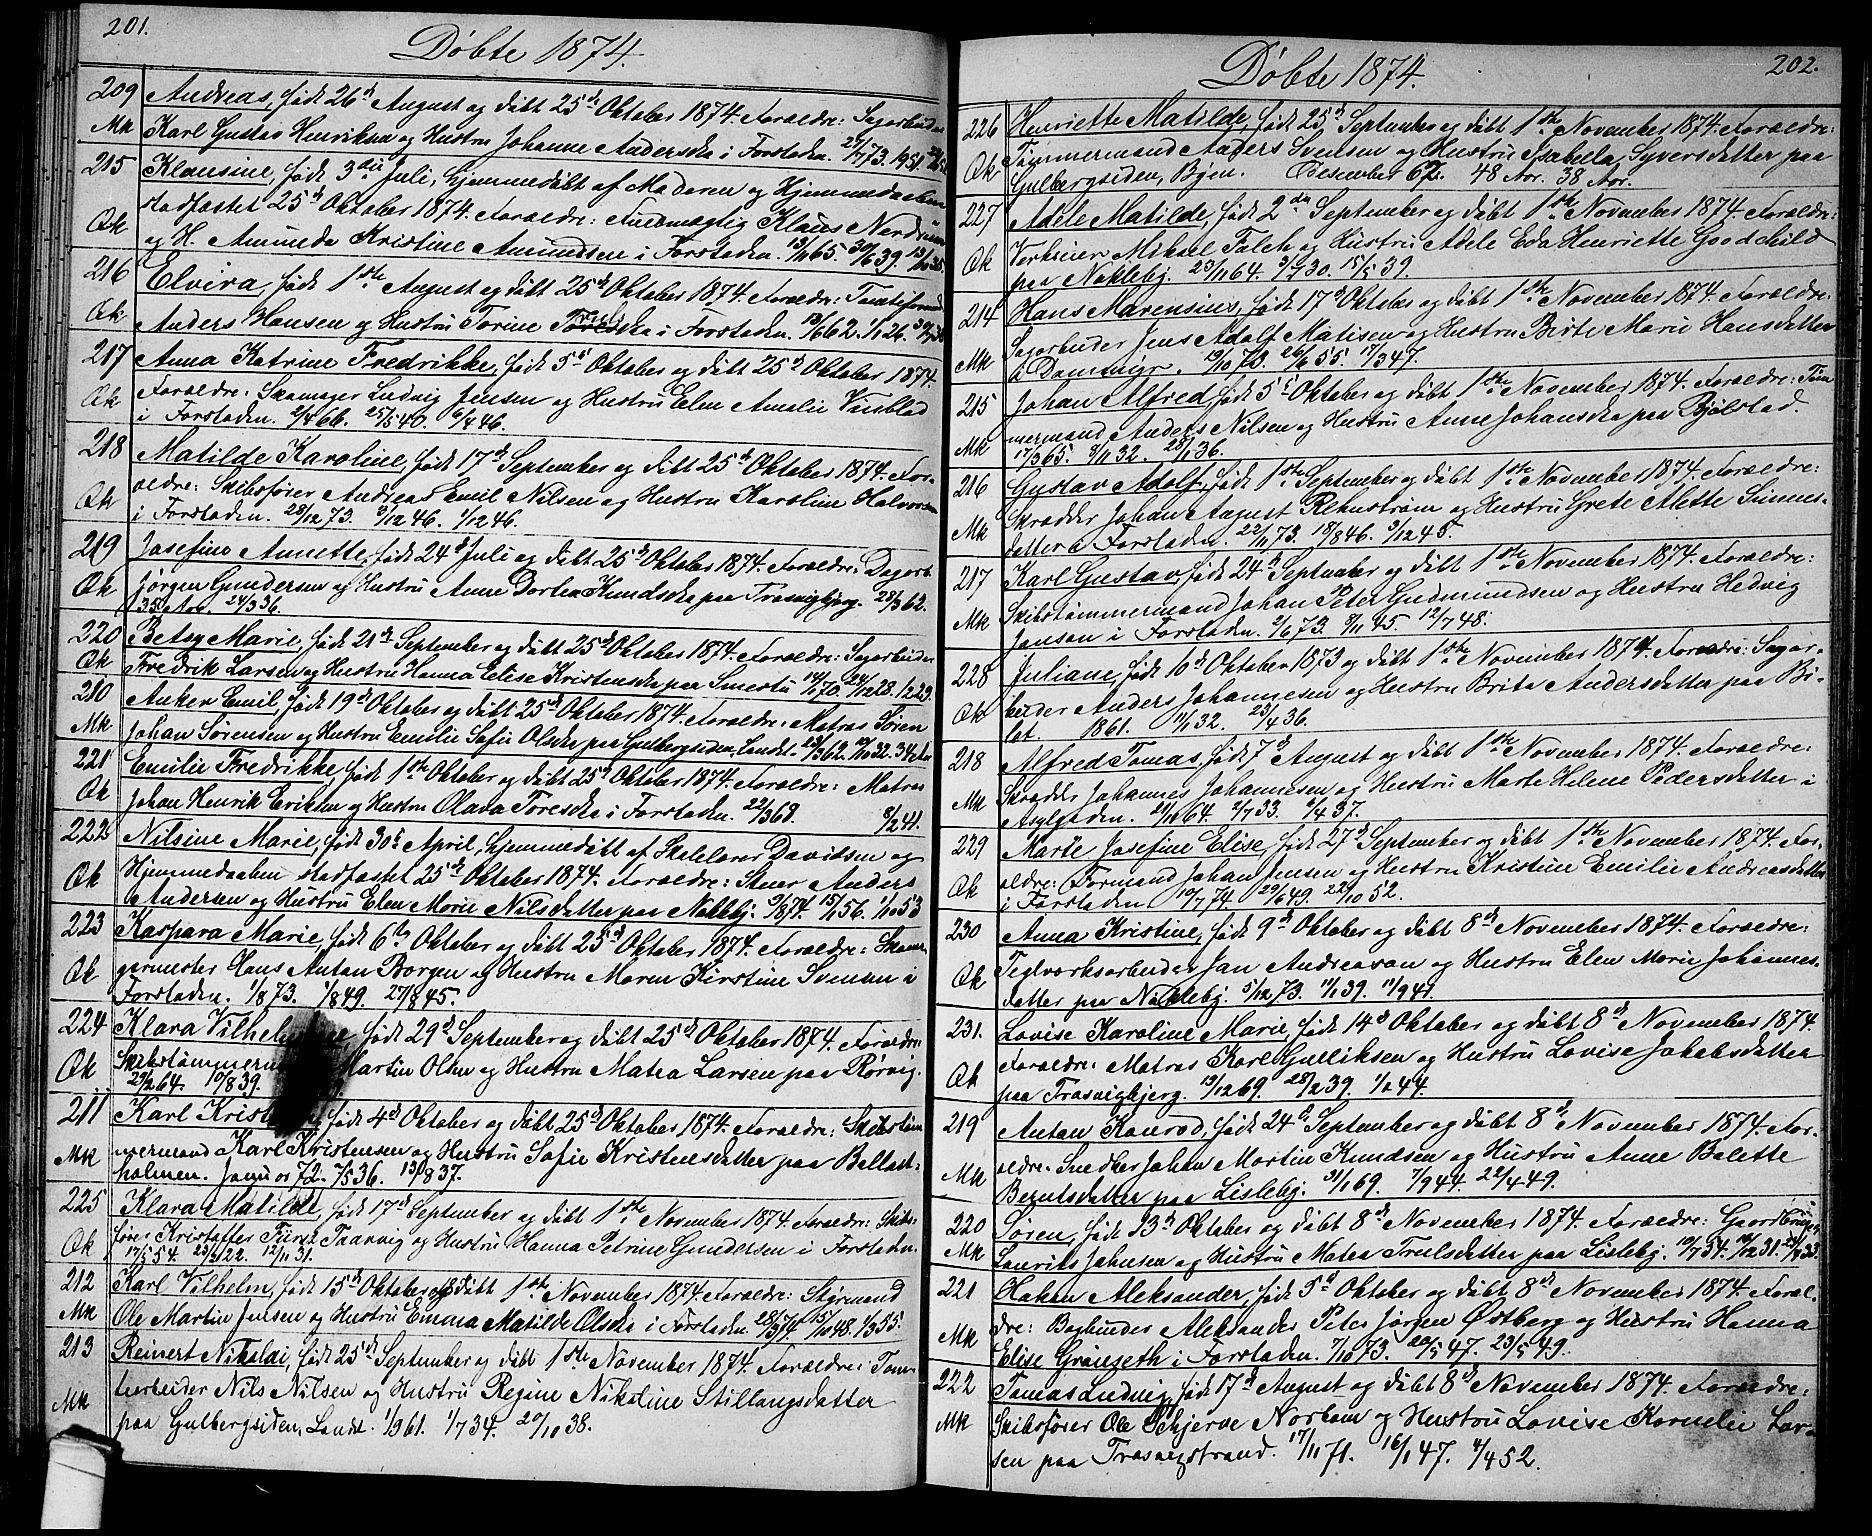 201.
Døbte 1874.
209 Andreas, født 26de August og døbt 25de Oktober 1874. Foræld­re: Sagarbeider
Mk Karl Gustav Henriksen og Hustru Johanne Andersda i Forstaden. 29/773. 1951.
215 Klausine, født 3die Juli, hjemmedøbt af Moderen og Hjemmedaaben
stadfæstet 25de Oktober 1874. Forældre: Fuldmægtig Klaus Nerdrum
Qk og H. Amunda Kristine Amundsen i Forstaden. 13/1165. 30/639.
216 Elvira, født 1ste August og døbt 25de Oktober 1874. Forældre: Tomteformand
Qk Anders Hansen og Hustru Torine Truls da i Forstaden. 13/662. 1/126.
217 Anna Katrine Fredrikke, født 5te Oktober og døbt 25de Oktober 1874.
Qk Forældre: Skomager Ludvig Jensen og Hustru Elen Amalie Vinblad
i Forstaden. 2/466. 25/540. 6/446.
218 Matilde Karoline, født 17de September og døbt 25de Oktober 1874. For-
Qk ældre: Skibsfører Andreas Emil Nilsen og Hustru Karoline Halvorsen
i Forstaden. 28/1273. 3/1246. 1/1246.
219 Josefine Annette, født 24de Juli og døbt 25de Oktober 1874. Forældre: Dagarb.
Qk Jørgen Gundersen og Hustru Anne Dortea Knudsda paa Trosvigbjerg. 28/362.
35 Aar. 24/336.
220 Betsy Marie, født 21de September og døbt 25de Oktober 1874. Forældre: Sagarbeider
Qk Fredrik Larsen og Hustru Hanna Elise Kristensda paa Smertu 14/170. 24/1228. 1/229.
210 Anker Emil, født 19de Oktober og døbt 25de Oktober 1874. Forældre: Matros Søren
Mk Johan Sørensen og Hustru Emilie Sofie Olsda paa Gulbergsiden, Landet. 19/362. 17/1032. 34 Aar
221 Emilie Fredrikke, født 1ste Oktober og døbt 25de Oktober 1874. Forældre: Matros
Qk Johan Henrik Eriksen og Hustru Olava Toresda i Forstaden. 22/368. 8/241.
222 Nilsine Marie, født 30te April, hjemmedøbt af Skolelærer Davidsen og
Qk Hjemmedaaben stadfæstet 25de Oktober 1874. Forældre: Stuer Anders
Andersen og Hustru Elen Marie Nilsdatter paa Nøkleby. 9/874. 15/156. 1/1053
223 Kaspara Marie, født 6te Oktober og døbt 25de Oktober 1874. Forældre: Skoma-
Qk germester Hans Anton Borgen og Hustru Maren Kirstine Svensen i
Forstaden. 1/873. 1/849. 27/845.
224 Klara Vilhelmine, født 29de September og døbt 25de Oktober 1874. Forældre:
Qk Skibstømmerm Martin Olsen og Hustru Matea Larsen paa Rørvig.
29/264. 10/839.
211 Karl Krist født 4de Oktober og døbt 25de Oktober 1874. Forældre: Skibstøm
Mk mermand Karl Kristensen og Hustru Sofie Kristensdatter paa Ballast-
holmen. Januar 72. 7/536. 13/837.
225 Klara Matilde, født 17de September og døbt 1ste November 1874. Forældre: Skibs-
Qk fører Kristoffer Taarvig og Hustru Hanna Petrine Gundersen i Forstaden.
17/554. 23/222. 12/1131.
212 Karl Vilhelm, født 15de Oktober og døbt 1ste November 1874. Forældre: Styrmand
Mk Ole Martin Jensen og Hustru Emma Matilde Olsda i Forstaden. 28/374. 15/1048. 1/355.
213 Reinert Nikolai, født 25de September og døbt 1ste November 1874. Forældre: Tom-
tearbeider Nils Nilsen og Hustru Regine Nikoline Stillangsdatter
Mk paa Gulbergsiden, Landet. 1/961. 1/734. 20/1038.
Døbte 1874.
202.
226 Henriette Matilde, født 25de September og døbt 1ste November 1874. Forældre:
Tømmermand Anders Svensen og Hustru Isabella Syversdatter paa
Qk Gulbergsiden, Byen. Desember 67. 48 Aar. 38 Aar.
227 Adele Matilde, født 2den September og døbt 1ste November 1874. Forældre:
Qk Verkseier Mikael Falch og Hustru Adele Eda Henriette Goodchild
paa Nøkleby. 23/1164. 3/730. 15/539.
214 Hans Marensius, født 17de Oktober og døbt 1ste November 1874. Forældre:
Sagarbeider Jens Adolf Matisen og Hustru Birte Marie Hansdatter
Mk i Dammyr. 19/1073. 26/655. 17/347.
215 Johan Alfred, født 5te Oktober og døbt 1ste November 1874. Forældre: Tøm
mermand Anders Nilsen og Hustru Anne Johansda paa Bjølstad.
Mk 17/365. 8/1132. 28/136.
216 Gustav Adolf, født 1ste September og døbt 1ste November 1874. Forældre:
Skrædder Johan August Rehnstrøm og Hustru Grete Alette Simens-
Mk datter i Forstaden. 22/1173. 18/846. 3/1245.
217 Karl Gustav, født 24de September og døbt 1ste November 1874. Forældre:
Skibstømmermand Johan Peter Gudmundsen og Hustru Hedvig
Mk Jansen i Forstaden. 2/673. 9/1145. 12/748.
228 Juliane, født 10de Oktober 1873 og døbt 1ste November 1874. Forældre: Sagar-
Qk beider Anders Johannesen og Hustru Brita Andersdatter paa Bi-
let. 1861. 11/132. 23/436.
218 Alfred Tomas, født 7de August og døbt 1ste November 1874. Forældre:
Mk Skrædder Johannes Johannesen og Hustru Marte Helene Pedersdatter i
Asylgaden. 21/1064. 2/733. 6/437.
229 Marie Josefine Elise, født 27de September og døbt 1ste November 1874. For-
Qk ældre: Formand Johan Jensen og Hustru Kristine Emilie Andreasdatter
i Forstaden 19/774. 29/649. 22/1052.
230 Anna Kristine, født 9de Oktober og døbt 8de November 1874. Forældre:
Qk Teglværksarbeider Jan Andreasson og Hustru Elen Marie Johannes-
datter paa Nøkleby. 5/1273. 11/139. 11/941.
231. Lovise Karoline Marie, født 14de Oktober og døbt 8de November 1874.
Qk Forældre: Matros Karl Gulliksen og Hustru Lovise Jakobsdatter
paa Trosvigbjerg. 19/1269. 28/239. 1/244.
219 Anton Konrad, født 24de September og døbt 8de November 1874. For-
Mk ældre: Snedker Johan Martin Knudsen og Hustru Anne Bolette
Berntsdatter paa Lisleby. 31/169. 7/944. 22/449.
220 Søren, født 13de Oktober og døbt 8de November 1874. Forældre: Gaardbruger
Mk Laurits Johnsen og Hustru Matea Trulsdatter paa Lisleby. 10/754.
221 Håkon Aleksander, født 5te Oktober og døbt 8de November 1874. Foræl-
Mk dre: Bogbinder Aleksander Peter Jørgen Østberg og Hustru Hanna
Elise Grönseth i Forstaden. 7/1073. 20/547. 23/549.
222 Tomas Ludvig, født 17de August og døbt 8de November 1874. Forældre:
Mk Skibsfører Ole Schjerve Norbom og Hustru Lovise Kornelie Lar-
sen paa Trosvigstrand. 17/1171. 16/147. 4/452.